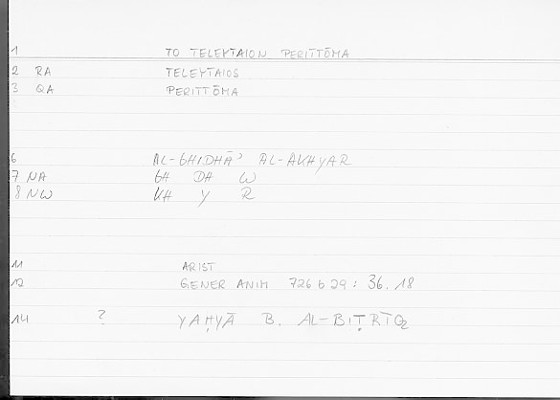 1 TO TELEYTAION PERITTŌMA
2 RA TELEYTAIOS
3 QA PERITTŌMA
6 AL-GHIDHĀʾ AL-AKHYAR
7 NA GH DH W
8 NW KH Y R
11 ARIST
12 GENER ANIM 726 b 29 : 36.18
14 ? YAḤYĀ B. AL-BIṬRĪQ